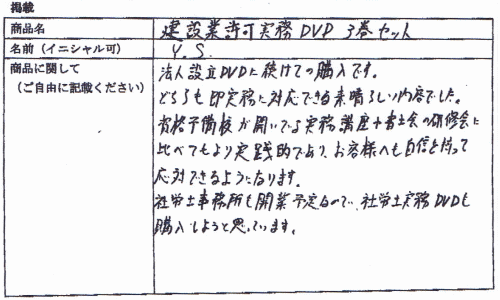 掲載
商品名 建設業許可実務DVD 3巻セット
名前（イニシャル可） Y.S.
商品に関して 法人設立DVDに続けての購入です。
（ご自由に記載ください） どちらも即実務に対応できる素晴らしい内容でした。
資格予備校が開いてる実務講座や書士会の研修会に
比べてもより実践的であり、お客様へも自信を持って
応対できるようになります。
社労士事務所も開業予定なので、社労士実務DVDも
購入しようと思っています。